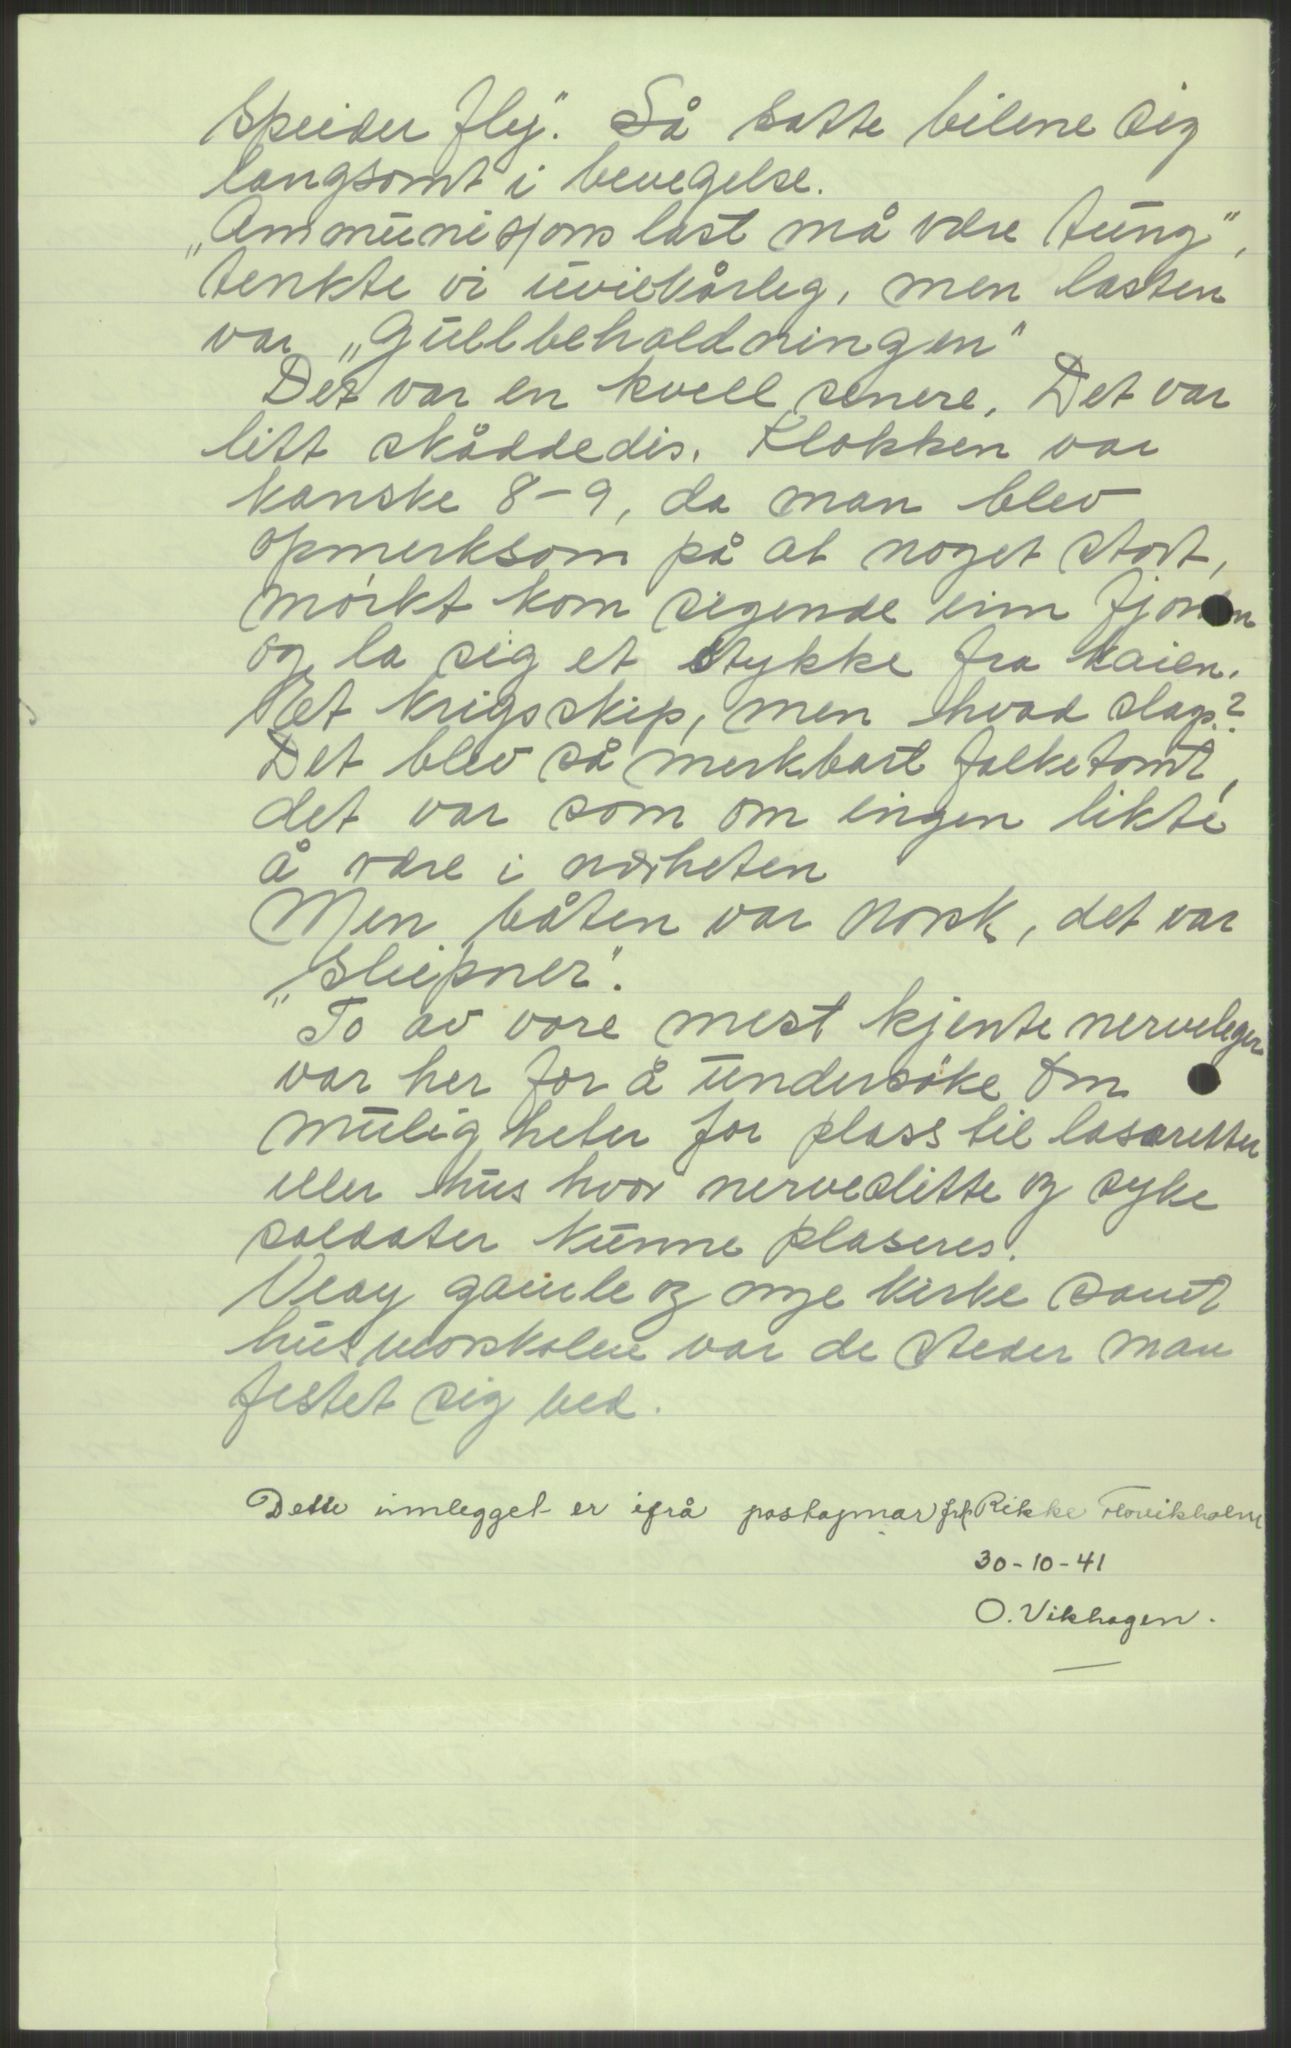 Speider fly". Så satte bilene sig
langsomt i bevegelse.
„Ammunisjons last må være tung",
tenkte vi uvilkårleg, men lasten
var „Gullbeholdningen"
Det var en kvell senere. Det var
litt skåddedis. Klokken var
kanske 8-9, da man blev
opmerksom på at noget stort,
mørkt kom sigende inn fjorden
og la sig et stykke fra kaien.
Et krigsskip, men hvad slags?
Det blev så merkbart folketomt,
det var som om ingen likte
å være i nærheten
Men båten var norsk, det var
„Sleipner".
To av vore mest kjente nerveleger
var her for å undersøke om
muligheter for plass til lasaretter
eller hus hvor nerveslitte og syke
soldater kunne plaseres.
Veøy gamle og nye kirke samt
husmorskolen var de steder man
festet sig ved.
Dette innlegget er ifrå postopnar frk. Rikke Flovikholm
30-10-41
O. Vikhagen.